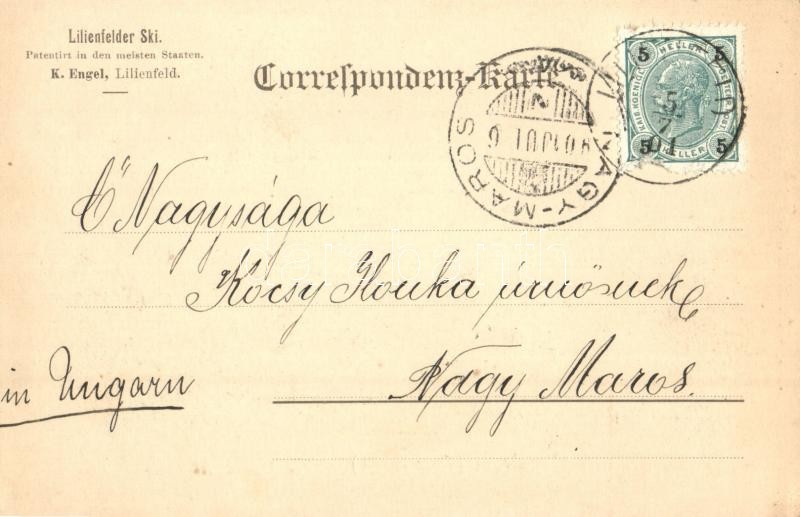 Lilienfelder Ski.
Patentirt in den meisten Staaten.
K. Engel, Lilienfeld.
Correspondenz-Karte
5 HELLER 5
5 HELLER 5
5
7
01
NAGY-MAROS
Ő Nagysága
Kócsy Ilonka úrnőnek
in Ungarn
Nagy Maros.